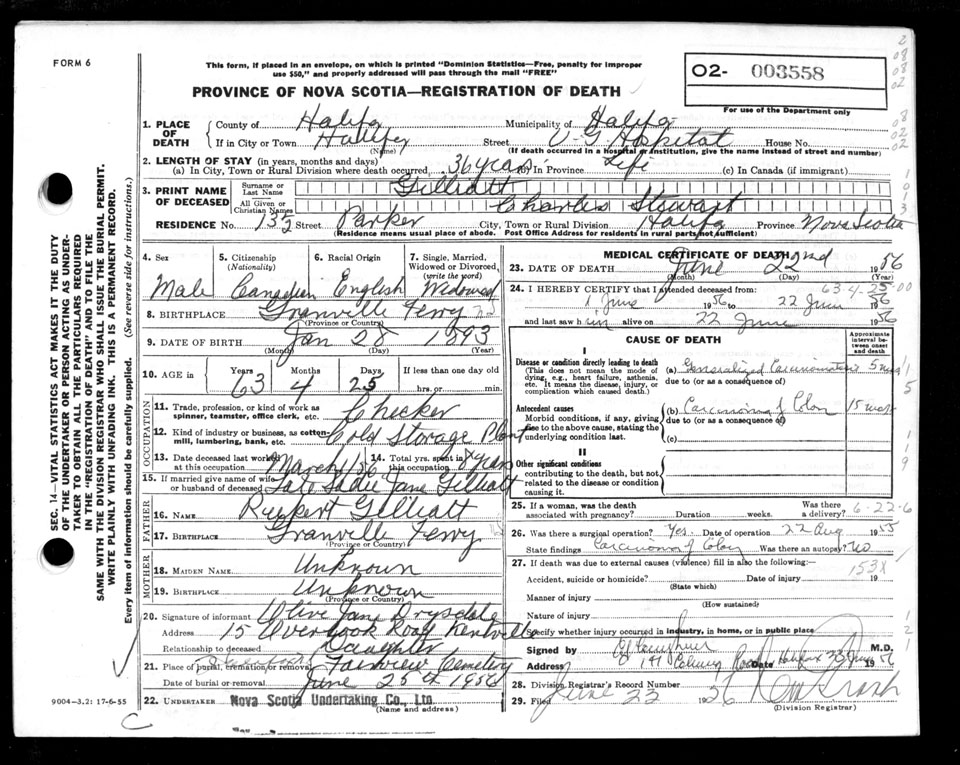 FORM 6
This form, if placed in an envelope, on which is printed "Dominion Statistics—Free, penalty for improper
use $50," and properly addressed will pass through the mail "FREE"
PROVINCE OF NOVA SCOTIA—REGISTRATION OF DEATH
O2- 003558
For use of the Department only
1. PLACE OF DEATH County of Halifax Municipality of Halifax
If in City or Town Halifax Street V G Hospital House No.
(Name) (If death occurred in a hospital or institution, give the name instead of street and number)
2. LENGTH OF STAY (in years, months and days)
(a) In City, Town or Rural Division where death occurred 36 years (b) In Province Life (c) In Canada (if immigrant)
3. PRINT NAME OF DECEASED Surname or Last Name Gilliatt
All Given or Christian Names Charles Stewart
RESIDENCE No. 135 Street Parker City, Town or Rural Division Halifax Province Nova Scotia
(Residence means usual place of abode. Post Office Address for residents in rural parts not sufficient)
4. Sex 5. Citizenship (Nationality) 6. Racial Origin 7. Single, Married, Widowed or Divorced, (write the word)
Male Canadian English Widowed
8. BIRTHPLACE Granville Ferry NS
(Province or Country)
9. DATE OF BIRTH Jan 28 1893
(Month) (Day) (Year)
10. AGE in Years Months Days If less than one day old
63 4 25 hrs. or min.
OCCUPATION
11. Trade, profession, or kind of work as spinner, teamster, office clerk, etc. Checker
12. Kind of industry or business, as cotton-mill, lumbering, bank, etc. Cold Storage Plant
13. Date deceased last worked at this occupation March 1/56 14. Total yrs. spent in this occupation years
15. If married give name of wife or husband of deceased Late Sadie Jane Gilliatt
FATHER
16. NAME Rupert Gilliatt
17. BIRTHPLACE Granville Ferry NS
(Province or Country)
MOTHER
18. MAIDEN NAME Unknown
19. BIRTHPLACE Unknown
(Province or Country)
20. Signature of informant Olive Jane Drysdale
Address 15 Overlook Road Kentville
Relationship to deceased Daughter
21. Place of burial, cremation or removal Fairview Cemetery
Date of burial or removal June 25th 1956
22. UNDERTAKER Nova Scotia Undertaking Co., Ltd.
(Name and address)
MEDICAL CERTIFICATE OF DEATH
23. DATE OF DEATH June 22nd 1956
(Month) (Day) (Year)
24. I HEREBY CERTIFY that I attended deceased from: 63-4-25-00
1 June 1956 to 22 June 56
and last saw him alive on 22 June 1956
CAUSE OF DEATH
Approximate interval between onset and death
I
Disease or condition directly leading to death
(This does not mean the mode of dying, e.g., heart failure, asthenia, etc. It means the disease, injury, or complication which caused death.)
(a) Generalized Carcinomatosis 5 mos
due to (or as a consequence of)
Antecedent causes
Morbid conditions, if any, giving rise to the above cause, stating the underlying condition last.
(b) Carcinoma of Colon 15 mos
due to (or as a consequence of)
(c)
II
Other significant conditions
contributing to the death, but not related to the disease or condition causing it.
25. If a woman, was the death associated with pregnancy? Duration weeks. Was there a delivery? 6-22-6
26. Was there a surgical operation? Yes. Date of operation 22 Aug 1955
State findings Carcinoma of Colon Was there an autopsy? No
27. If death was due to external causes (violence) fill in also the following:—
153X
Accident, suicide or homicide? Date of injury 19
(State which)
Manner of injury
(How sustained)
Nature of injury
Specify whether injury occurred in industry, in home, or in public place
Signed by M.D.
Address Road Halifax Date 22 June 1956
28. Division Registrar's Record Number
29. Filed June 23 1956
(Division Registrar)
SEC. 14—VITAL STATISTICS ACT MAKES IT THE DUTY
OF THE UNDERTAKER OR PERSON ACTING AS UNDER-
TAKER TO OBTAIN ALL THE PARTICULARS REQUIRED
IN THE "REGISTRATION OF DEATH" AND TO FILE THE
SAME WITH THE DIVISION REGISTRAR WHO SHALL ISSUE THE BURIAL PERMIT.
WRITE PLAINLY WITH UNFADING INK. THIS IS A PERMANENT RECORD.
Every item of information should be carefully supplied. (See reverse side for instructions.)
9004—3.2: 17-6-55
C